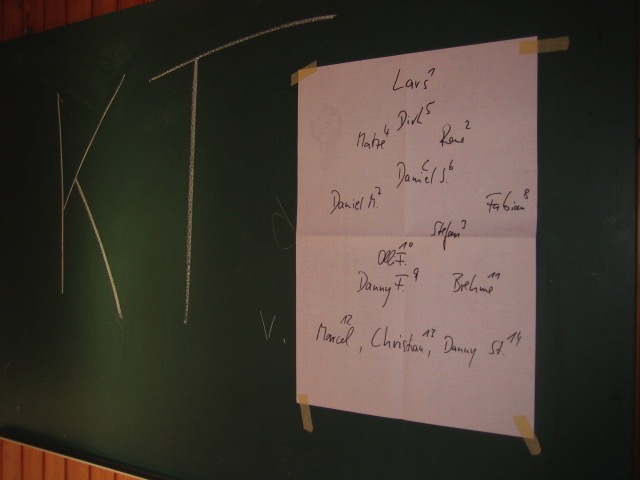 KT
Lars 1
Dirk 5
Matze 4 René 2
Daniel S. 6
Daniel M. 7 Fabian 8
Stefan 3
Olli F. 10
Danny F. 9 Brehme 11
Marcel 12, Christian 13, Danny St. 14
v.